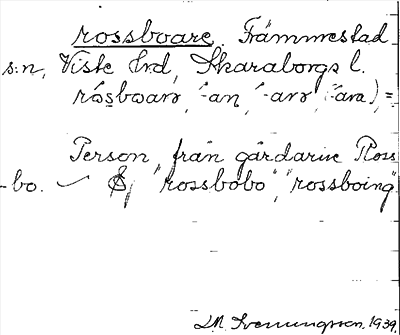 rossboare, Främmestad
s:n, Viste hrd, Skaraborgs l.
råsboarə, -an, -arə (-ara) =
Person från gårdarne Ross
-bo. "rossbobo", "rossboing"
Svenningsson, 1939.